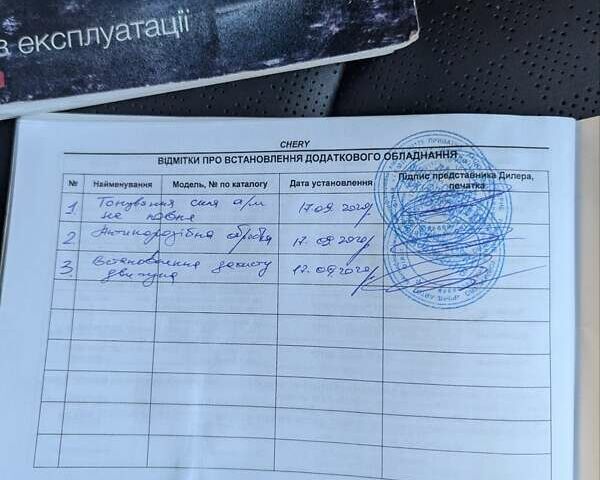 з експлуатації
CHERY
ВІДМІТКИ ПРО ВСТАНОВЛЕННЯ ДОДАТКОВОГО ОБЛАДНАННЯ
№ Найменування Модель, № по каталогу Дата установлення Підпис представника Дилера, печатка
1. Тонування скла а/м 17.09.2020р
2 Антикорозійна обробка 17.09.2020р
3. Встановлення захисту 17.09.2020р
двигуна